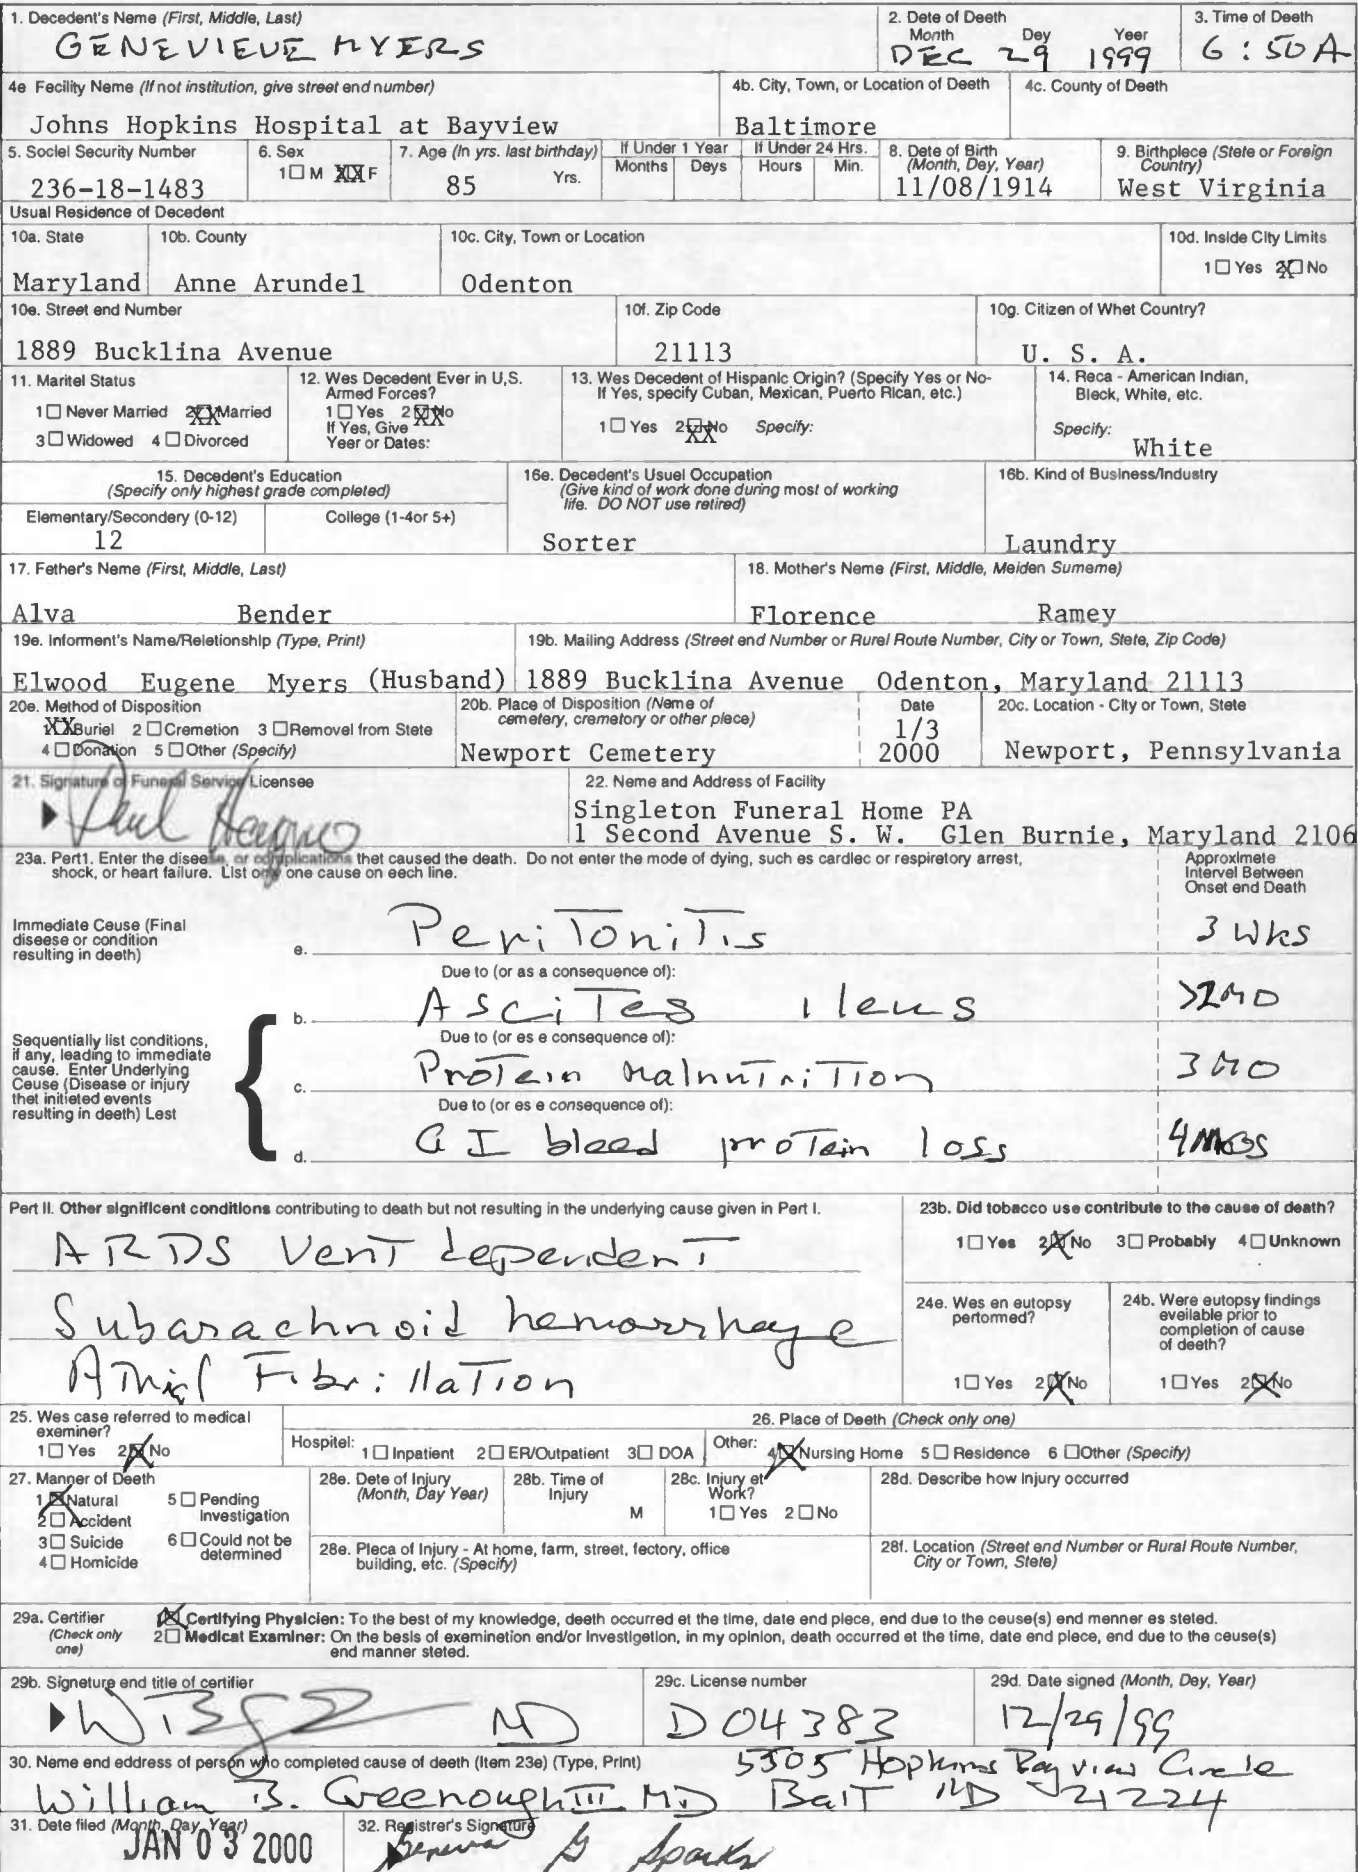 1. Decedent's Name (First, Middle, Last)
GENEVIEVE MYERS
2. Dete of Deeth
Month Dey Yeer
DEC 29 1999
3. Time of Deeth
6:50A
4e Fecility Name (If not institution, give street end number)
Johns Hopkins Hospital at Bayview
4b. City, Town, or Location of Deeth
Baltimore
4c. County of Deeth
5. Sociel Security Number
236-18-1483
6. Sex
1 ☐ M XX F
7. Age (In yrs. last birthday)
85 Yrs.
If Under 1 Year
Months Deys
If Under 24 Hrs.
Hours Min.
8. Dete of Birth
(Month, Dey, Year)
11/08/1914
9. Birthplece (Stete or Foreign
Country)
West Virginia
Usual Residence of Decedent
10a. State
Maryland
10b. County
Anne Arundel
10c. City, Town or Location
Odenton
10d. Inside City Limits
1 ☐ Yes 2 X No
10e. Street end Number
1889 Bucklina Avenue
10f. Zip Code
21113
10g. Citizen of Whet Country?
U. S. A.
11. Maritel Status
1 ☐ Never Married 2 XX Married
3 ☐ Widowed 4 ☐ Divorced
12. Wes Decedent Ever in U,S.
Armed Forces?
1 ☐ Yes 2 XX No
If Yes, Give
Yeer or Dates:
13. Wes Decedent of Hispanic Origin? (Specify Yes or No-
If Yes, specify Cuban, Mexican, Puerto Rican, etc.)
1 ☐ Yes 2 XX No Specify:
14. Reca - American Indian,
Bleck, White, etc.
Specify:
White
15. Decedent's Education
(Specify only highest grade completed)
Elementary/Secondery (0-12) College (1-4or 5+)
12
16e. Decedent's Usuel Occupation
(Give kind of work done during most of working
life. DO NOT use retired)
Sorter
16b. Kind of Business/Industry
Laundry
17. Fether's Name (First, Middle, Last)
Alva Bender
18. Mother's Name (First, Middle, Meiden Sumeme)
Florence Ramey
19e. Informent's Name/Reletionship (Type, Print)
Elwood Eugene Myers (Husband)
19b. Mailing Address (Street end Number or Rurel Route Number, City or Town, Stete, Zip Code)
1889 Bucklina Avenue Odenton, Maryland 21113
20e. Method of Disposition
XX Buriel 2 ☐ Cremetion 3 ☐ Removal from Stete
4 ☐ Donation 5 ☐ Other (Specify)
20b. Place of Disposition (Neme of
cemetery, cremetory or other plece)
Newport Cemetery
Date
1/3
2000
20c. Location - City or Town, State
Newport, Pennsylvania
21. Signature of Funeral Service Licensee
22. Name and Address of Facility
Singleton Funeral Home PA
1 Second Avenue S. W. Glen Burnie, Maryland 2106
23a. Pert1. Enter the diseese, or complications thet caused the death. Do not enter the mode of dying, such es cardiec or respiretory arrest,
shock, or heart failure. List only one cause on eech line.
Approximete
Intervel Between
Onset end Death
Immediate Ceuse (Final
diseese or condition
resulting in deeth)
e. Peritonitis 3 wks
Due to (or as a consequence of):
b. Ascites ileus >2MO
Due to (or es e consequence of):
Sequentially list conditions,
if any, leading to immediate
cause. Enter Underlying
Ceuse (Disease or injury
thet initieted events
resulting in deeth) Lest
c. Protein Malnutrition 3 MO
Due to (or es e consequence of):
d. GI bleed protein loss 4 MOS
Part II. Other significent conditions contributing to death but not resulting in the underlying cause given in Pert I.
ARDS Vent dependent
Subarachnoid hemorrhage
Atrial Fibrillation
23b. Did tobacco use contribute to the cause of death?
1 ☐ Yes 2 X No 3 ☐ Probably 4 ☐ Unknown
24e. Wes en eutopsy
pertormed?
1 ☐ Yes 2 X No
24b. Were eutopsy findings
eveilable prior to
completion of cause
of deeth?
1 ☐ Yes 2 X No
25. Wes case referred to medical
examiner?
1 ☐ Yes 2 X No
26. Place of Deeth (Check only one)
Hospitel: 1 ☐ Inpatient 2 ☐ ER/Outpatient 3 ☐ DOA Other: 4 X Nursing Home 5 ☐ Residence 6 ☐ Other (Specify)
27. Manner of Deeth
1 X Natural 5 ☐ Pending
Investigation
2 ☐ Accident
3 ☐ Suicide 6 ☐ Could not be
determined
4 ☐ Homicide
28e. Dete of Injury
(Month, Day Year)
28b. Time of
Injury
M
28c. Injury et
Work?
1 ☐ Yes 2 ☐ No
28d. Describe how Injury occurred
28e. Pleca of Injury - At home, farm, street, fectory, office
building, etc. (Specify)
28f. Location (Street end Number or Rural Route Number,
City or Town, Stete)
29a. Certifier
(Check only
one)
X Certifying Physicien: To the best of my knowledge, deeth occurred et the time, date end plece, end due to the ceuse(s) end menner es steted.
2 ☐ Medicat Examiner: On the besis of exemination end/or Investigetion, in my opinion, death occurred et the time, date end piece, end due to the ceuse(s)
end manner steted.
29b. Signeture end title of certifier
MD
29c. License number
D04383
29d. Date signed (Month, Dey, Year)
12/29/99
30. Name end eddress of person who completed cause of death (Item 23e) (Type, Print)
5505 Hopkins Bayview Circle
William B. Greenough III MD Balt MD 21224
31. Dete filed (Month, Day, Year)
JAN 03 2000
32. Registrer's Signeture
Geneva G Sparks